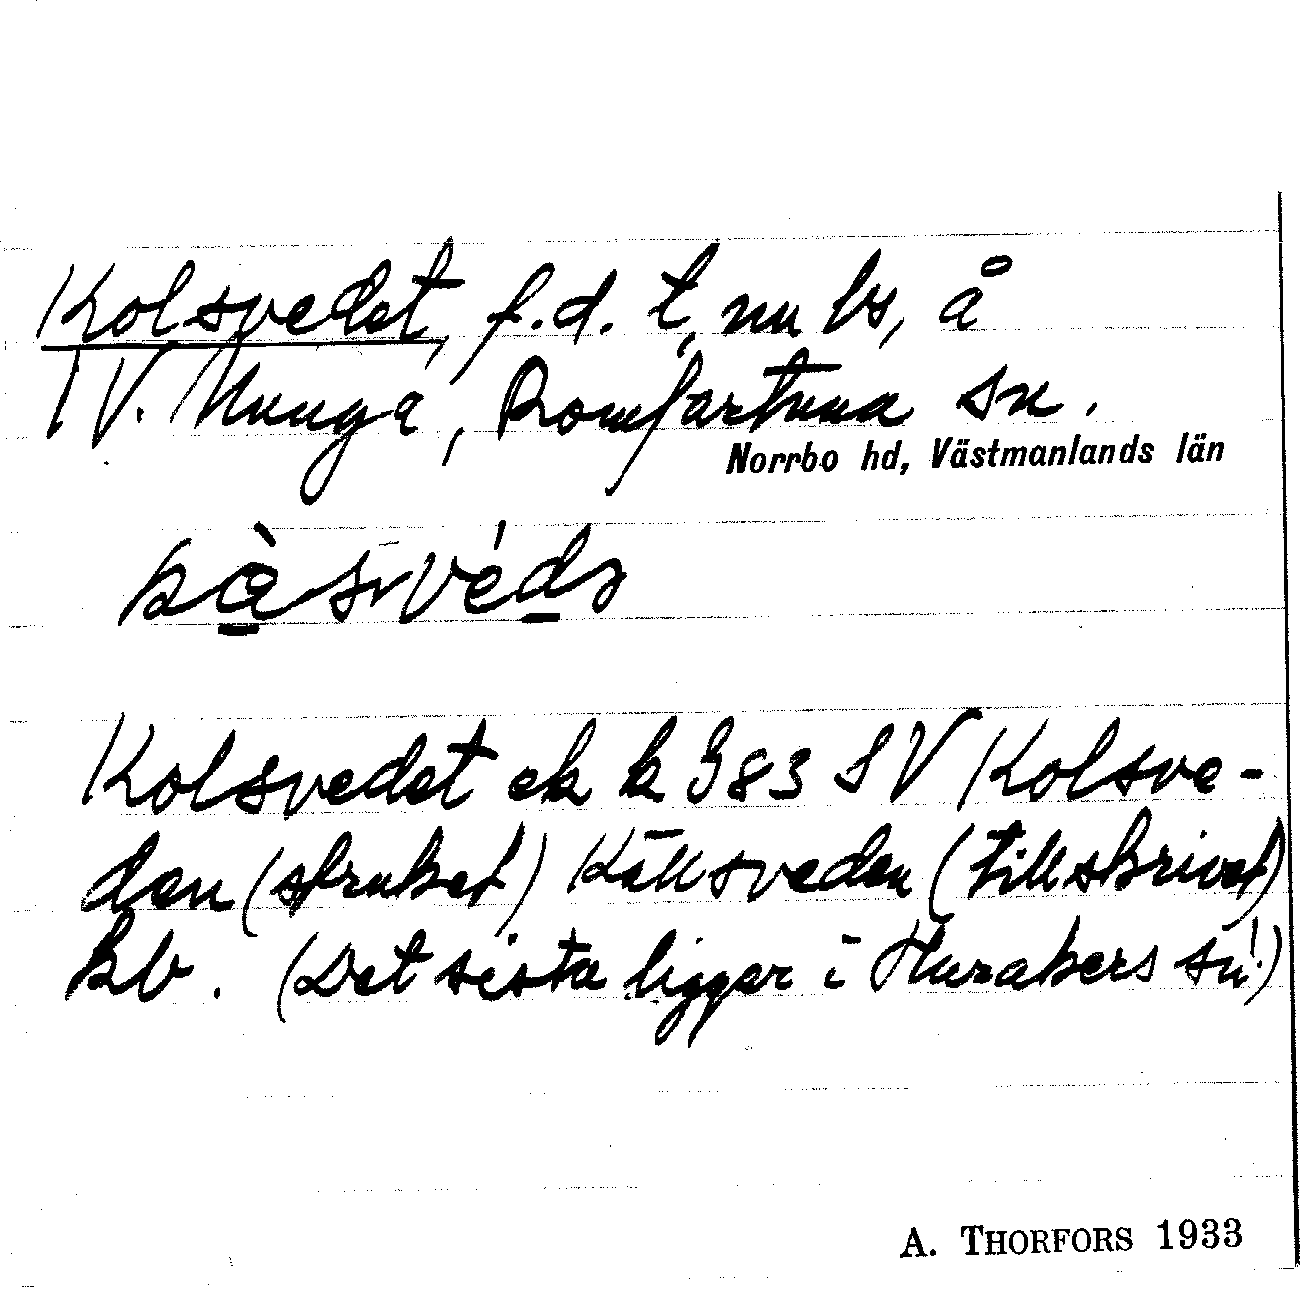 Kolsvedet, f.d. t, nu ls, å
V. Munga, Romfartuna sn.
Norrbo hd, Västmanlands län
Kolsvedet ek k 383 SV Kolsve-
den (struket) Källsveden (tillskrivet)
kb. (Det sista ligger i Harakers sn!)
A. THORFORS 1933